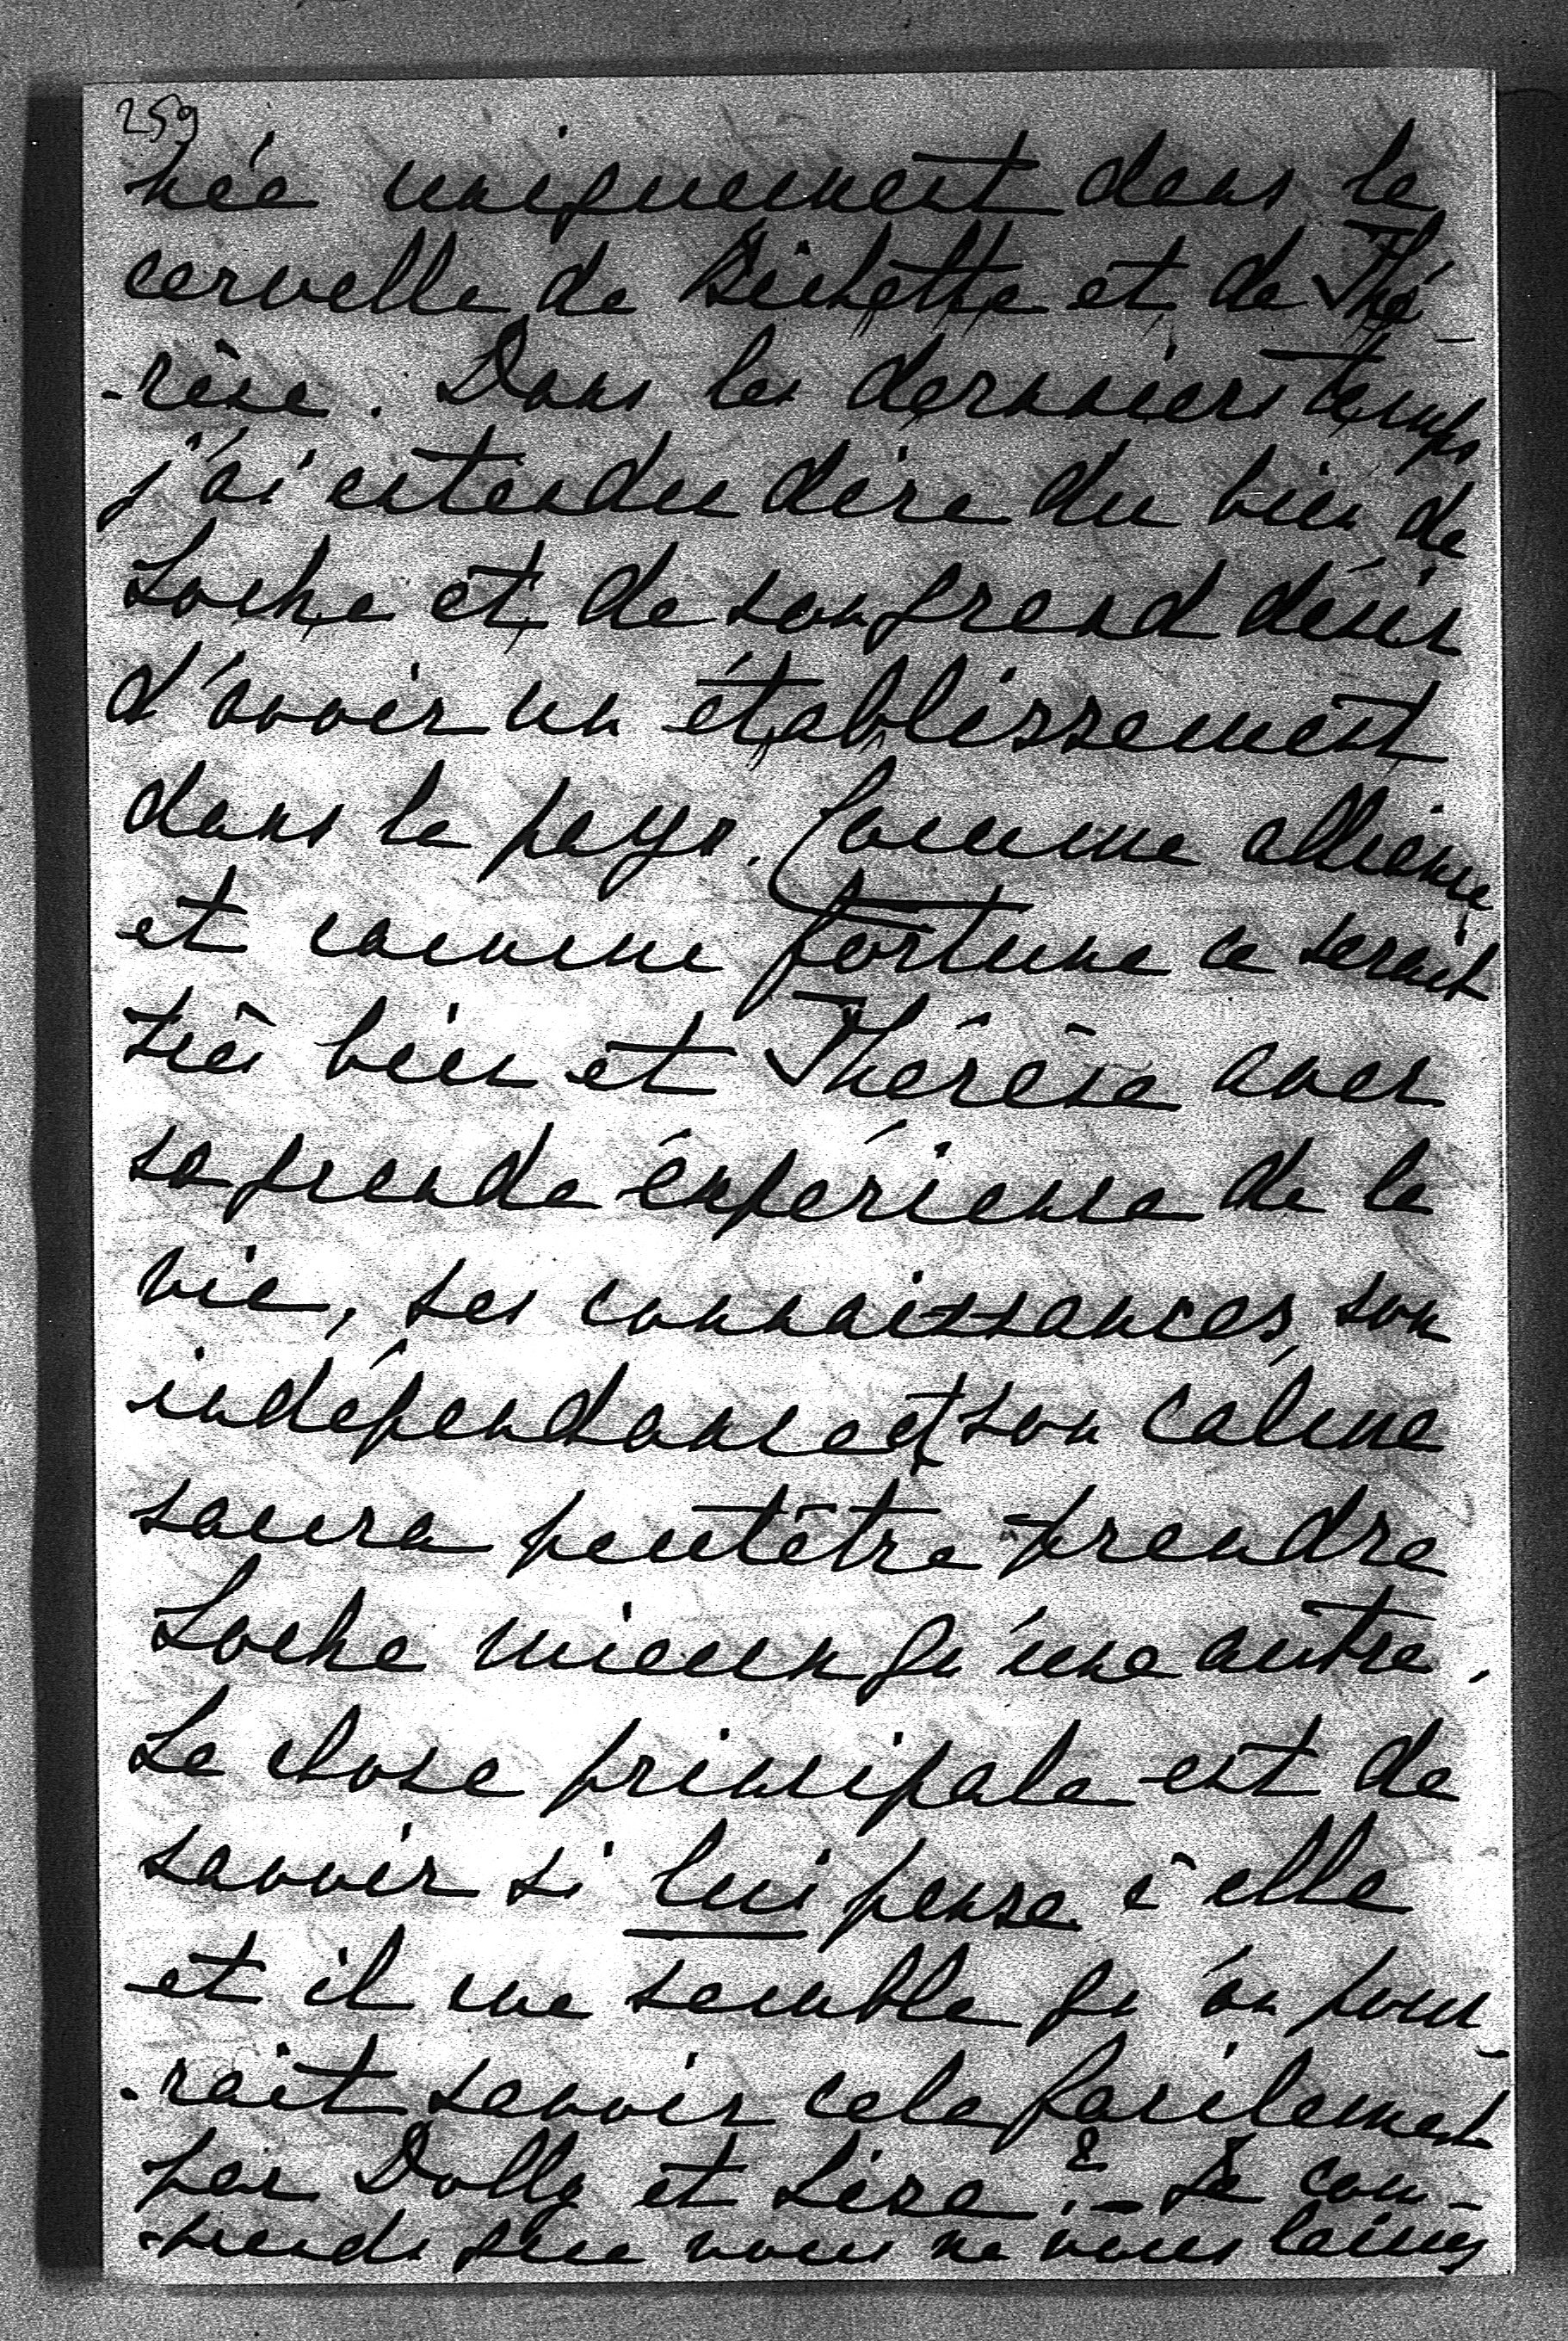 259
née uniquement dans la
cervelle de Bichette et de Thé-
-rèse. Dans les derniers temps
j'ai entendu dire du bien de
Locke et de son grand désir
d'avoir un établissement
dans le pays. Comme alliance
et comme fortune ce serait
très bien et Thérèse avec
sa grande expérience de la
vie, ses connaissances, son
indépendance et son calme
saura peutêtre prendre
Locke mieux qu'une autre.
La chose principale est de
savoir si lui pense à elle
et il me semble qu'on pour-
-rait savoir cela facilement
par Dolly et Lisa? - Je com-
-prends que vous ne vous laissez